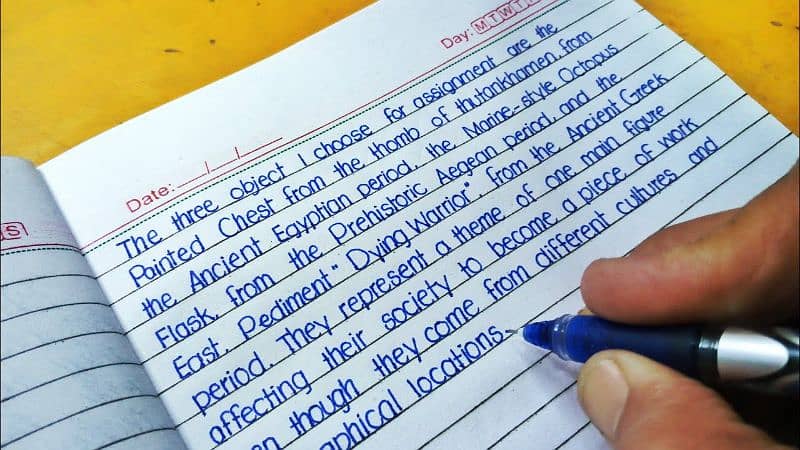 Day: M T W T
Date: __/__/__
The three object I choose for assignment are the
Painted Chest from the thomb of thutankhamen, from
the Ancient Egyptian period, the Marine-style Octopus
Flask, from the Prehistoric Aegean period, and the
East, Pediment "Dying Warrior", from the Ancient Greek
period. They represent a theme of one main figure
affecting their society to become a piece of work
en though they come from different cultures and
aphical locations.
S